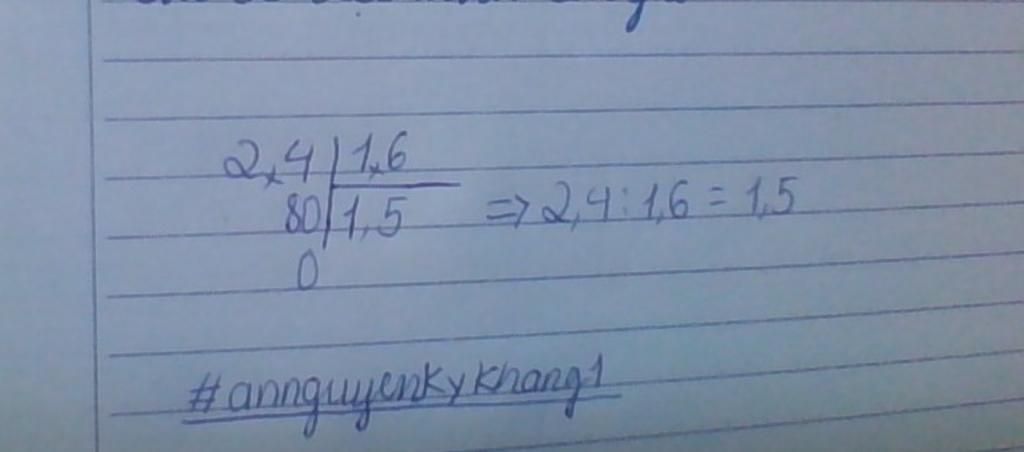 2,4 | 1,6
80 | 1,5 => 2,4 : 1,6 = 1,5
0
#annguyenkykhang1